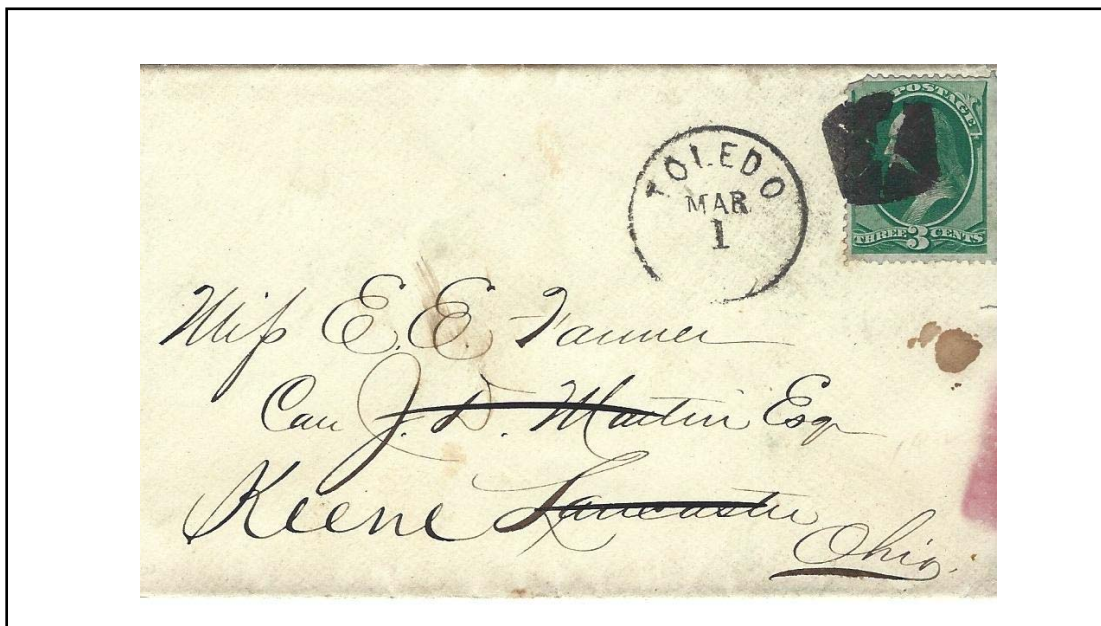 POSTAGE
THREE 3 CENTS
TOLEDO
MAR
1
Miss E. E. Fanner
Care J. D. Martin Esq
Keene Lancaster
Ohio.